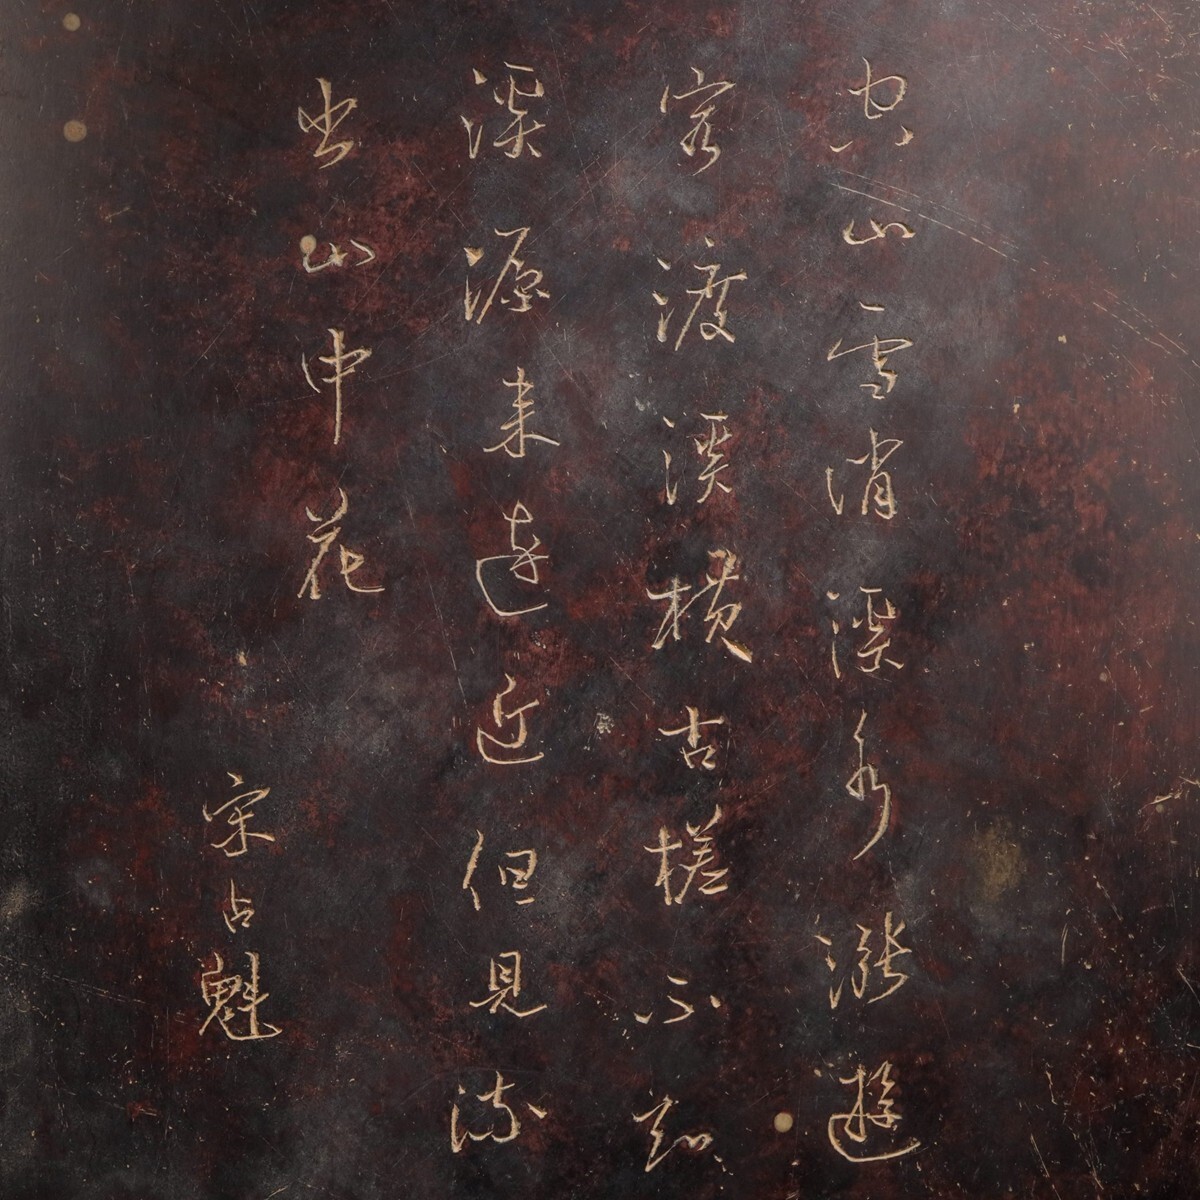 空山雪消溪水漲遊
客渡溪橫古槎不知
溪源来遠近但見流
出山中花
宋占魁